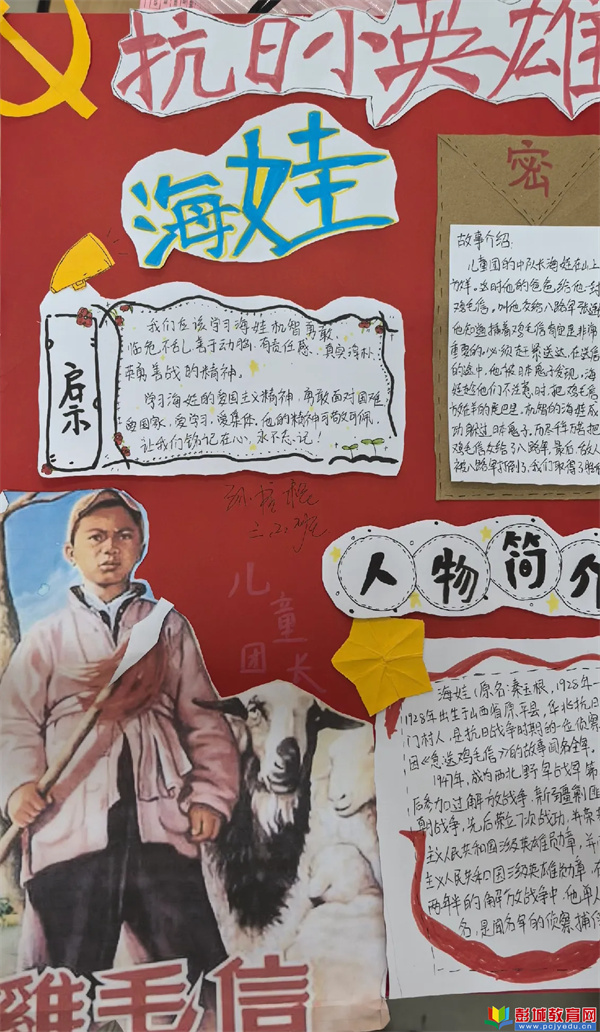 抗日小英雄
海娃
密
故事介绍:
儿童团的中队长海娃在山上
放羊。这时他的爸爸给他一封
鸡毛信。叫他交给八路军张连
他知道插着鸡毛信肯定是非常
重要的,必须赶紧送达,在送信
的途中,他被日本鬼子发现,海
娃趁他们不注意时,把鸡毛信
放在羊的尾巴里,机智的海娃成
功躲过日本鬼子。历尽千辛万苦把
鸡毛信交给了八路军,最后,敌人
被八路军打倒了,我们取得了胜利
启示
我们应该学习海娃机智勇敢、
临危不乱、善于动脑、有责任感、真实淳朴、
英勇善战的精神。
学习海娃的爱国主义精神,勇敢面对困难
热爱国家、爱学习、爱集体。他的精神可敬可佩,
让我们铭记在心,永不忘记!
三.2.班
儿童团长
人物简介
海娃(原名:秦玉根,1928年—
1928年出生于山西省原平县,华北抗日
门村人,是抗日战争时期的一位侦察
因《急送鸡毛信》的故事闻名全军。
1947年,成为西北野军战军第
后参加过解放战争、新疆剿匪
朝战争,先后荣立7次战功,并荣
主义人民共和国三级英雄勋章,并
主义人民共和国三级英雄勋章,在
两年半的解放战争中,他单人
名,是闻名全军的侦察捕俘
雞毛信
彭城教育网
www.pcjyedu.cn